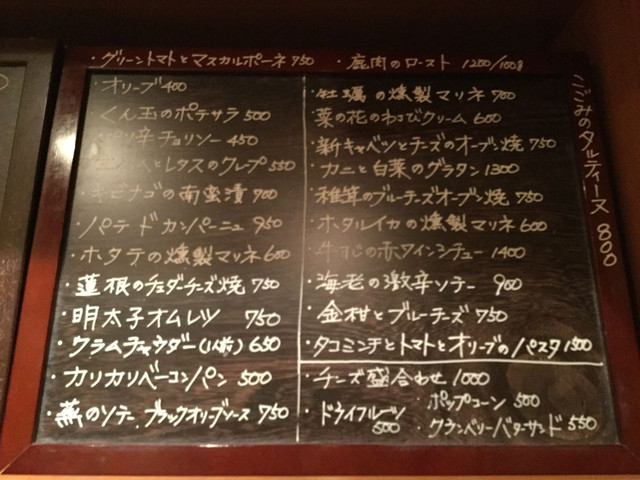 ・グリーントマトとマスカルポーネ 750
・鹿肉のロースト 1200/100g
・オリーブ 400
くん玉のポテサラ 500
ピリ辛チョリソー 450
とレタスのクレープ 550
・キビナゴの南蛮漬 700
・パテドカンパーニュ 950
・ホタテの燻製マリネ 600
・蓮根のチェダーチーズ焼 750
・明太子オムレツ 750
・クラムチャウダー(1人前) 650
・カリカリベーコンパン 500
・蕪のソテー ブラックオリーブソース 750
・牡蠣の燻製マリネ 700
・菜の花のわさびクリーム 600
・新キャベツとチーズのオーブン焼 750
・カニと白菜のグラタン 1300
・椎茸のブルーチーズオーブン焼 750
・ホタルイカの燻製マリネ 600
・牛すじの赤ワインシチュー 1400
・海老の激辛ソテー 900
・金柑とブルーチーズ 750
・タコミンチとトマトとオリーブのパスタ 1500
・チーズ盛合わせ 1000
・ポップコーン 500
・ドライフルーツ 500
・クランベリーバターサンド 550
こごみのタルティーヌ 800